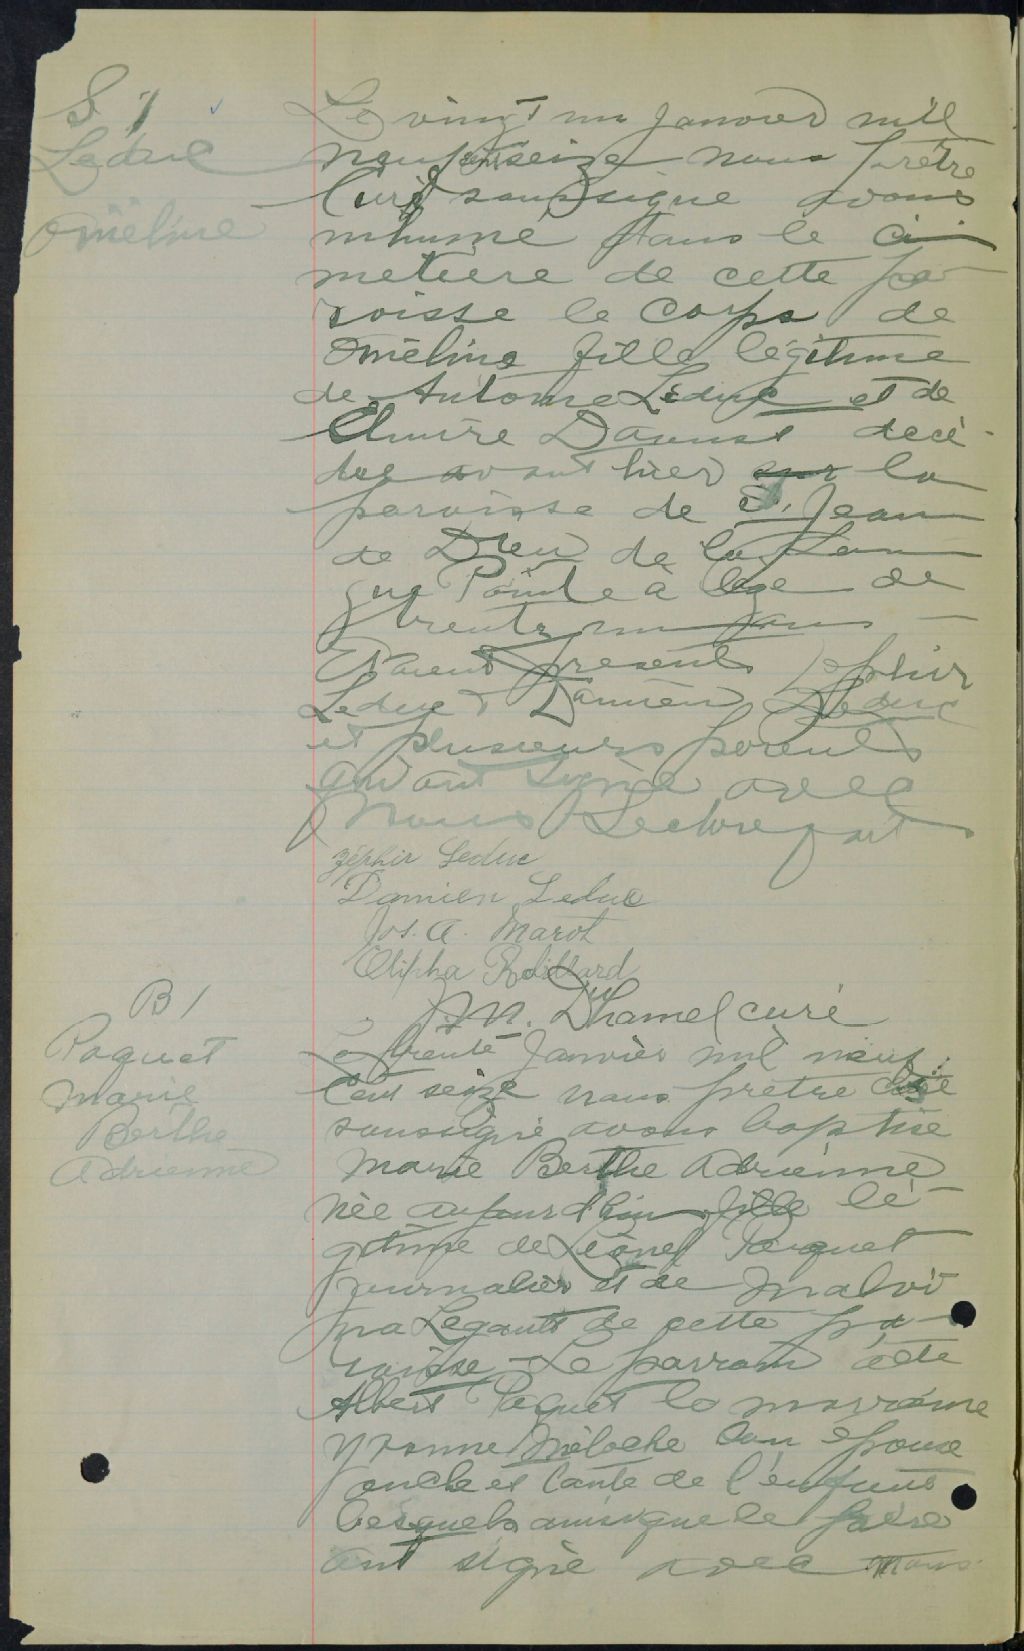 S 1
Leduc
Oméline
Le vingt un Janvier mil
neuf cent seize nous prêtre
Curé soussigné avons
inhumé dans le ci-
metiere de cette pa-
roisse le corps de
Omélina fille légitime
de Antoine Leduc et de
Elmire Daoust décé-
dée avant hier sur la
paroisse de S. Jean
de Dieu de la Lon
gue Pointe à l'age de
trente un ans —
Etaient présents Zéphir
Leduc & Damien Leduc
et plusieurs parents
qui ont signé avec
nous Lecture fait
Zéphir Leduc
Damien Leduc
Jos. A. Marot
Elipha Robillard
J. M. Duhamel curé
B 1
Paquet
Marie
Berthe
Adrienne
Le trente Janvier mil neuf
Cent seize nous prêtre curé
soussigné avons baptisé
Marie Berthe Adrienne
née aujourd'hui fille lé-
gitime de Lionel Paquet
journalier et de Malvi
na Legault de cette pa-
roisse - Le parrain a été
Albert Paquet la marraine
Yvonne Méloche son épouse
oncle et tante de l'enfant
lesquels ainsi que le père
ont signé avec nous